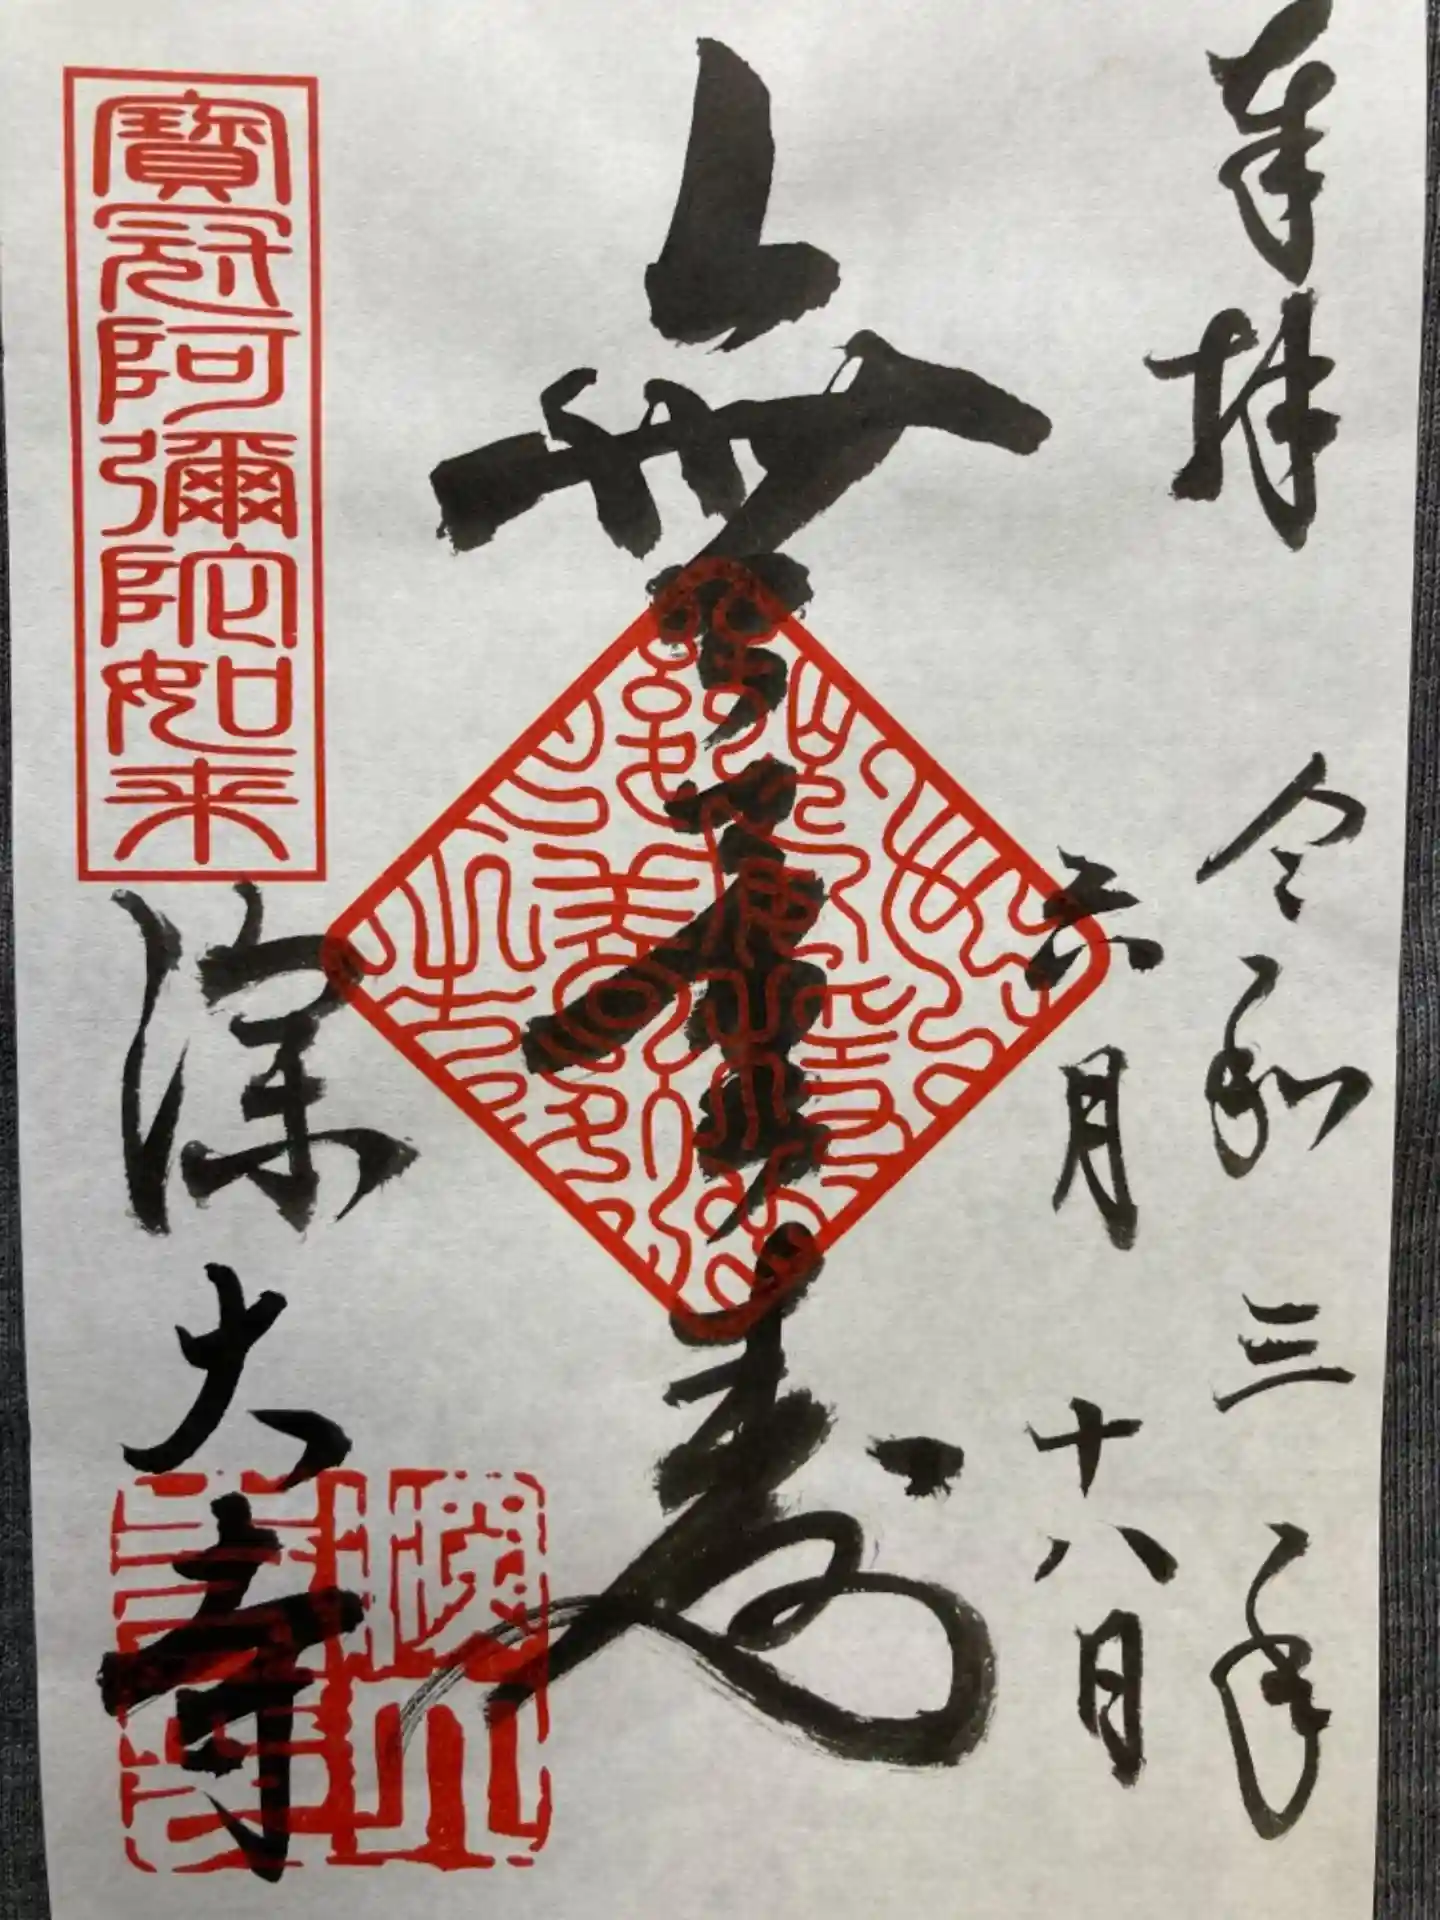 奉拝
令和三年
六月
十八日
無量寿
寶冠阿彌陀如来
深大寺